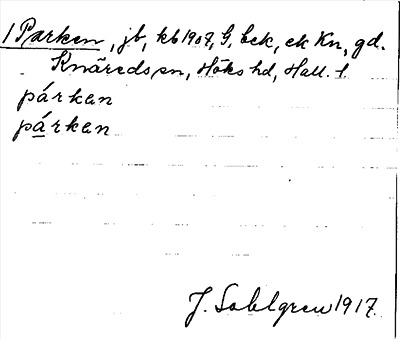 1 Parken, jb, kb 1907, G, bek, ek Kn, gd.
Knäreds sn, Höks hd, Hall. l.
párken
párken
J. Sahlgren 1917